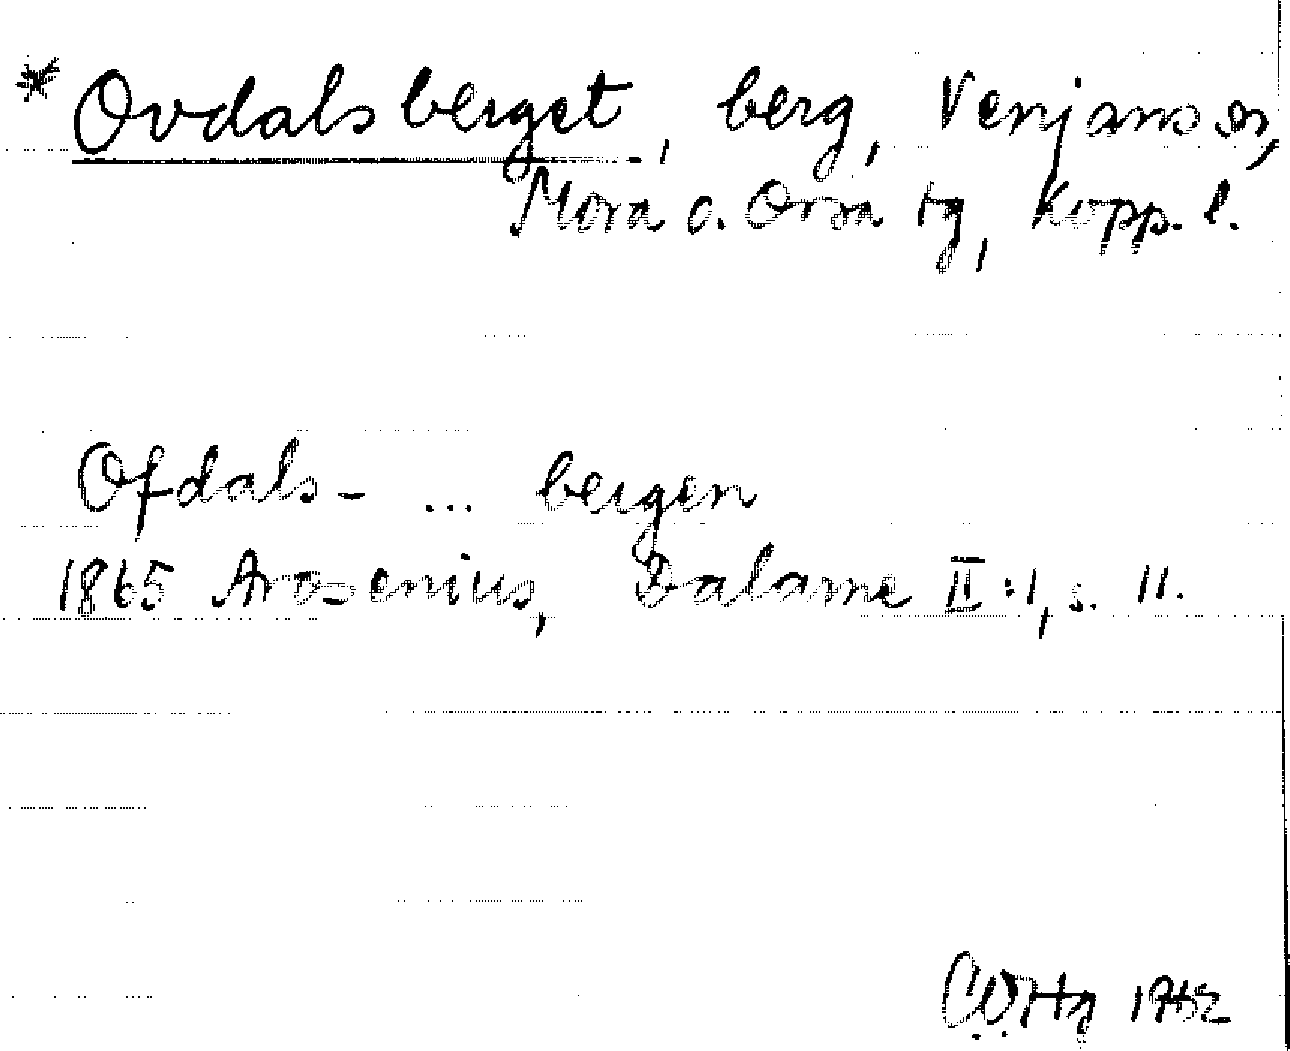 * Ovdalsberget, berg, Venjans sn,
Mora o. Orsa tg, Kopp. l.
Ofdals- ... bergen
1865 Arosenius, Dalarne II:1, s. 11.